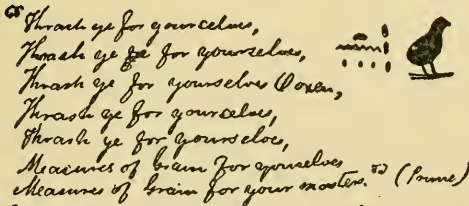 "Thrash ye for yourcelves,
Thrash ye fe for yourselves,
Thrash ye for yourselves Oxen,
Thrash ye for yourcelves,
Thrash ye for yourseloes,
Measures of Grain for yourselves
Measures of Grain for your masters." (Prime)